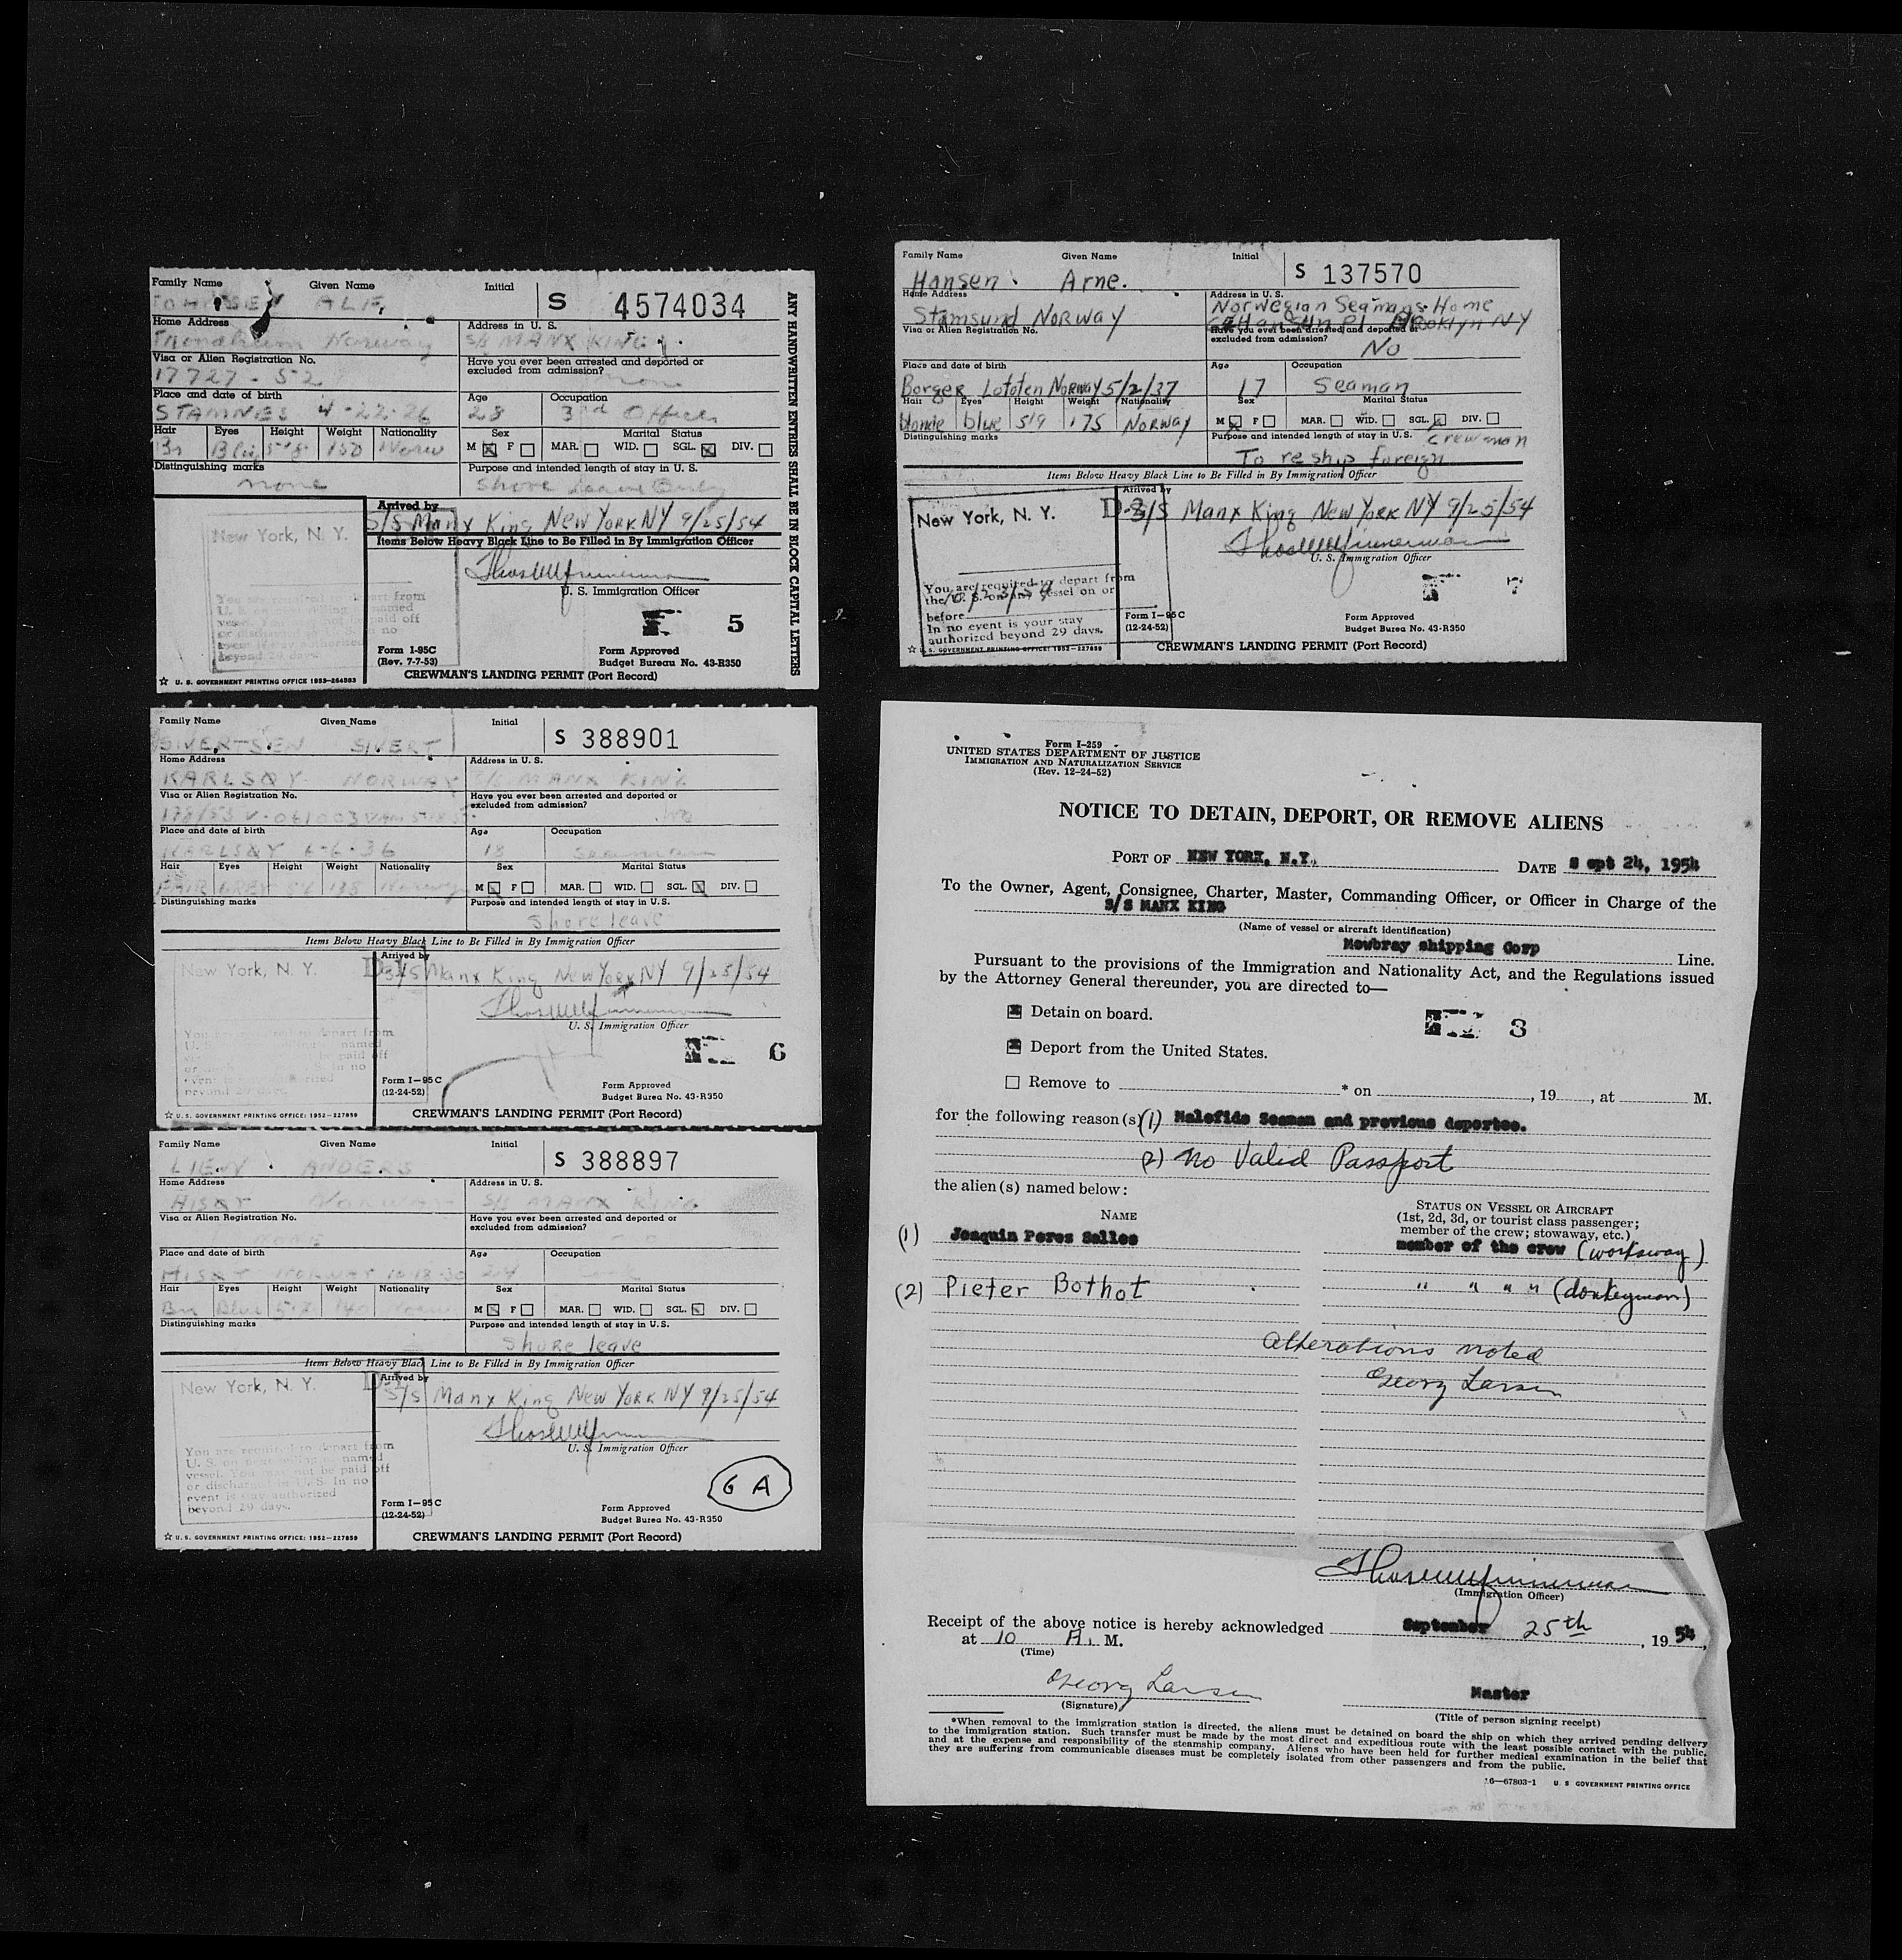 Family Name Given Name Initial S 4574034
ALF
Home Address Address in U. S.
Norway S/S MANX KING
Visa or Alien Registration No. Have you ever been arrested and deported or
excluded from admission?
17727-52 none
Place and date of birth Age Occupation
STAMNES 4-22-26 28 3rd Officer
Hair Eyes Height Weight Nationality Sex Marital Status
Br Blu 5-8 150 Norw M F MAR. WID. SGL. DIV.
Distinguishing marks Purpose and intended length of stay in U. S.
none Shore Leave Only
Arrived by
S/S Manx King New York NY 9/25/54
Items Below Heavy Black Line to Be Filled in By Immigration Officer
New York, N. Y.
U. S. Immigration Officer
5
Form I-95C
(Rev. 7-7-53)
Form Approved
Budget Bureau No. 43-R350
☆ U. S. GOVERNMENT PRINTING OFFICE 1953—264583
CREWMAN'S LANDING PERMIT (Port Record)
ANY HANDWRITTEN ENTRIES SHALL BE IN BLOCK CAPITAL LETTERS
Family Name Given Name Initial S 388901
SIVERTSEN SIVERT
Home Address Address in U. S.
KARLSØY NORWAY S/S MANX KING
Visa or Alien Registration No. Have you ever been arrested and deported or
excluded from admission?
Place and date of birth Age Occupation
KARLSØY 6-6-36 18 seaman
Hair Eyes Height Weight Nationality Sex Marital Status
FAIR GREY 5-6 138 Norway M F MAR. WID. SGL. DIV.
Distinguishing marks Purpose and intended length of stay in U. S.
Shore leave
Items Below Heavy Black Line to Be Filled in By Immigration Officer
New York, N. Y. D-1
Arrived by
S/S Manx King New York NY 9/25/54
U. S. Immigration Officer
6
Form I—95C
(12-24-52)
Form Approved
Budget Burea No. 43-R350
☆ U. S. GOVERNMENT PRINTING OFFICE: 1952—227859
CREWMAN'S LANDING PERMIT (Port Record)
Family Name Given Name Initial S 388897
LIEN ANDERS
Home Address Address in U. S.
S/S MANX KING
Visa or Alien Registration No. Have you ever been arrested and deported or
excluded from admission?
NONE
Place and date of birth Age Occupation
NORWAY 24
Hair Eyes Height Weight Nationality Sex Marital Status
Br Blue M F MAR. WID. SGL. DIV.
Distinguishing marks Purpose and intended length of stay in U.S.
Shore leave
Items Below Heavy Black Line to Be Filled in By Immigration Officer
New York, N. Y. D-1
Arrived by
S/S Manx King New York NY 9/25/54
U. S. Immigration Officer
You are required to depart from
U. S. on named
vessel. You may not be paid off
or discharged in U.S. In no
event is stay authorized
beyond 29 days.
6 A
Form I—95C
(12-24-52)
Form Approved
Budget Burea No. 43-R350
☆ U. S. GOVERNMENT PRINTING OFFICE: 1952—227859
CREWMAN'S LANDING PERMIT (Port Record)
Family Name Given Name Initial S 137570
Hansen Arne.
Home Address Address in U. S.
Stamsund Norway Norwegian Seamans Home
Brooklyn NY
Visa or Alien Registration No. Have you ever been arrested and deported or
excluded from admission?
No
Place and date of birth Age Occupation
Borger Lofoten Norway 5/2/37 17 Seaman
Hair Eyes Height Weight Nationality Sex Marital Status
blonde blue 5/9 175 Norway M F MAR. WID. SGL. DIV.
Distinguishing marks Purpose and intended length of stay in U.S. crewman
To reship foreign
Items Below Heavy Black Line to Be Filled in By Immigration Officer
New York, N. Y. D-2
Arrived by
S/S Manx King New York NY 9/25/54
U. S. Immigration Officer
You are required to depart from
the U. S. on any vessel on or
before 10/23/54
In no event is your stay
authorized beyond 29 days.
7
Form I—95C
(12-24-52)
Form Approved
Budget Burea No. 43-R350
☆ U. S. GOVERNMENT PRINTING OFFICE: 1952—227859
CREWMAN'S LANDING PERMIT (Port Record)
Form I-259
UNITED STATES DEPARTMENT OF JUSTICE
IMMIGRATION AND NATURALIZATION SERVICE
(Rev. 12-24-52)
NOTICE TO DETAIN, DEPORT, OR REMOVE ALIENS
PORT OF NEW YORK, N.Y. DATE Sept 24, 1954
To the Owner, Agent, Consignee, Charter, Master, Commanding Officer, or Officer in Charge of the
S/S MANX KING
(Name of vessel or aircraft identification)
Mowbray shipping Corp Line.
Pursuant to the provisions of the Immigration and Nationality Act, and the Regulations issued
by the Attorney General thereunder, you are directed to—
Detain on board.
3
Deport from the United States.
Remove to * on , 19 , at M.
for the following reason(s) (1) Malafide Seaman and previous deportee.
(2) No Valid Passport
the alien(s) named below:
NAME
STATUS ON VESSEL OR AIRCRAFT
(1st, 2d, 3d, or tourist class passenger;
member of the crew; stowaway, etc.)
(1) Joaquin Peres Salles member of the crew (worksway)
(2) Pieter Bothot " " " " (donkeyman)
Alterations noted
Georg Larsen
(Immigration Officer)
Receipt of the above notice is hereby acknowledged September 25th, 19 54,
at 10 A. M.
(Time)
Georg Larsen Master
(Signature) (Title of person signing receipt)
*When removal to the immigration station is directed, the aliens must be detained on board the ship on which they arrived pending delivery
to the immigration station. Such transfer must be made by the most direct and expeditious route with the least possible contact with the public,
and at the expense and responsibility of the steamship company. Aliens who have been held for further medical examination in the belief that
they are suffering from communicable diseases must be completely isolated from other passengers and from the public.
16—67803-1 U. S. GOVERNMENT PRINTING OFFICE